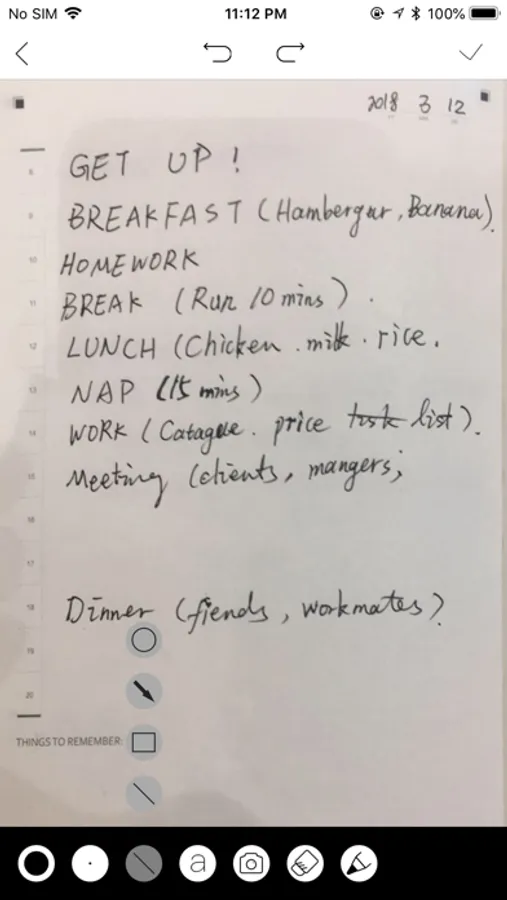 No SIM 11:12 PM 100%
2018 3 12
GET UP !
8
BREAKFAST (Hambergur, Banana).
9
HOMEWORK
10
BREAK (Run 10 mins).
11
LUNCH (Chicken. milk. rice.
12
NAP (15 mins)
13
WORK (Catague. price task list).
14
Meeting (clients, mangers;
15
16
17
Dinner (fiends, workmates)
18
19
20
THINGS TO REMEMBER:
a